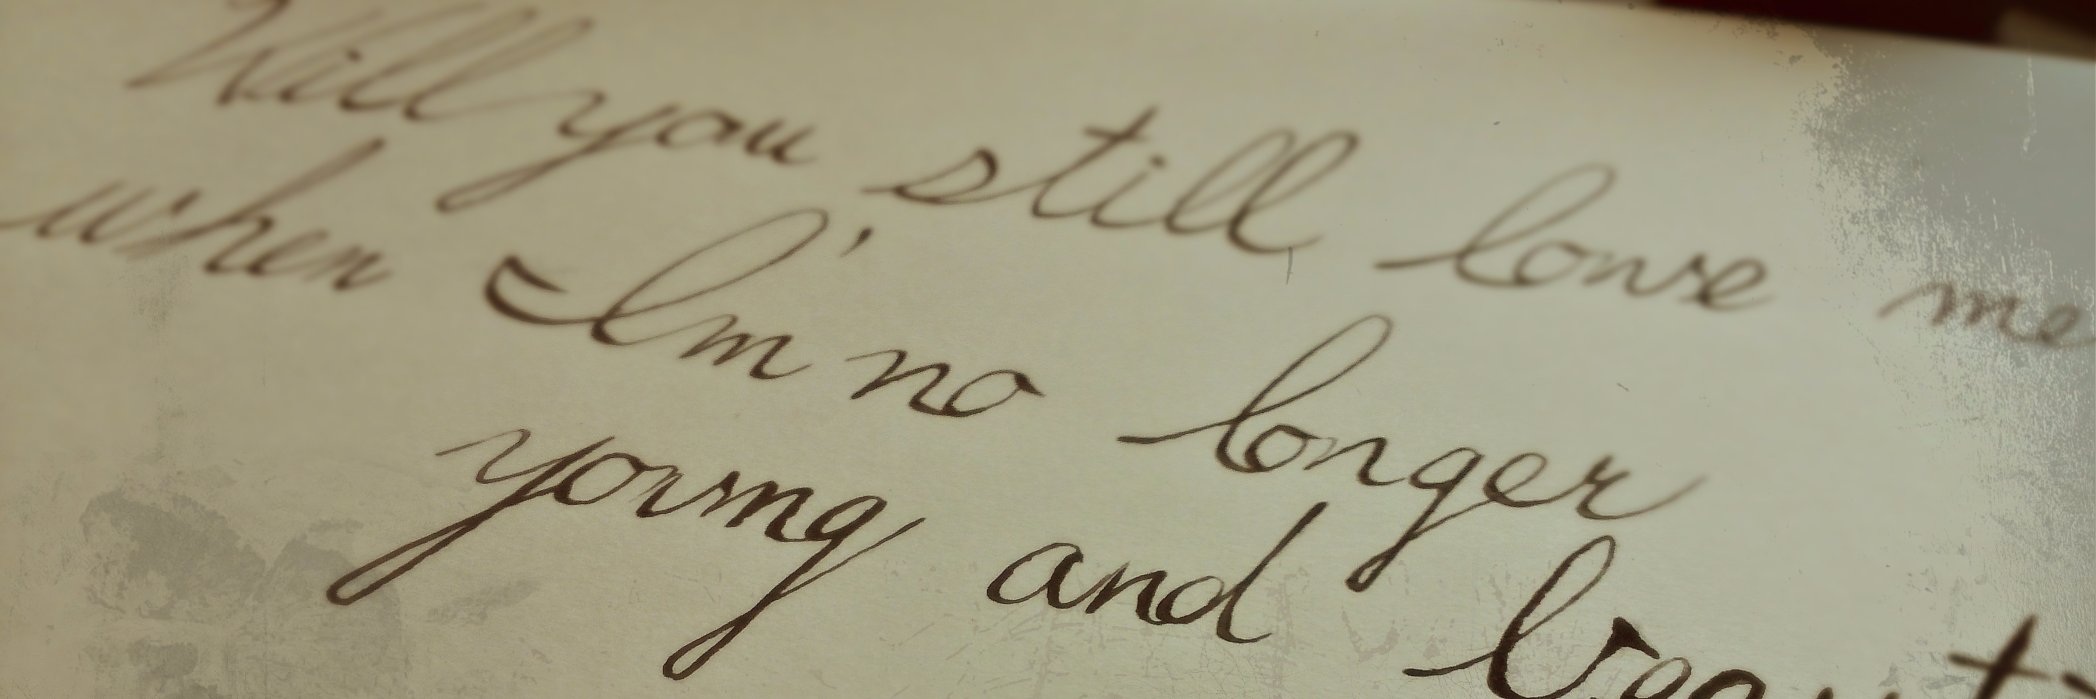 Will you still love me
when I'm no longer
young and beauti